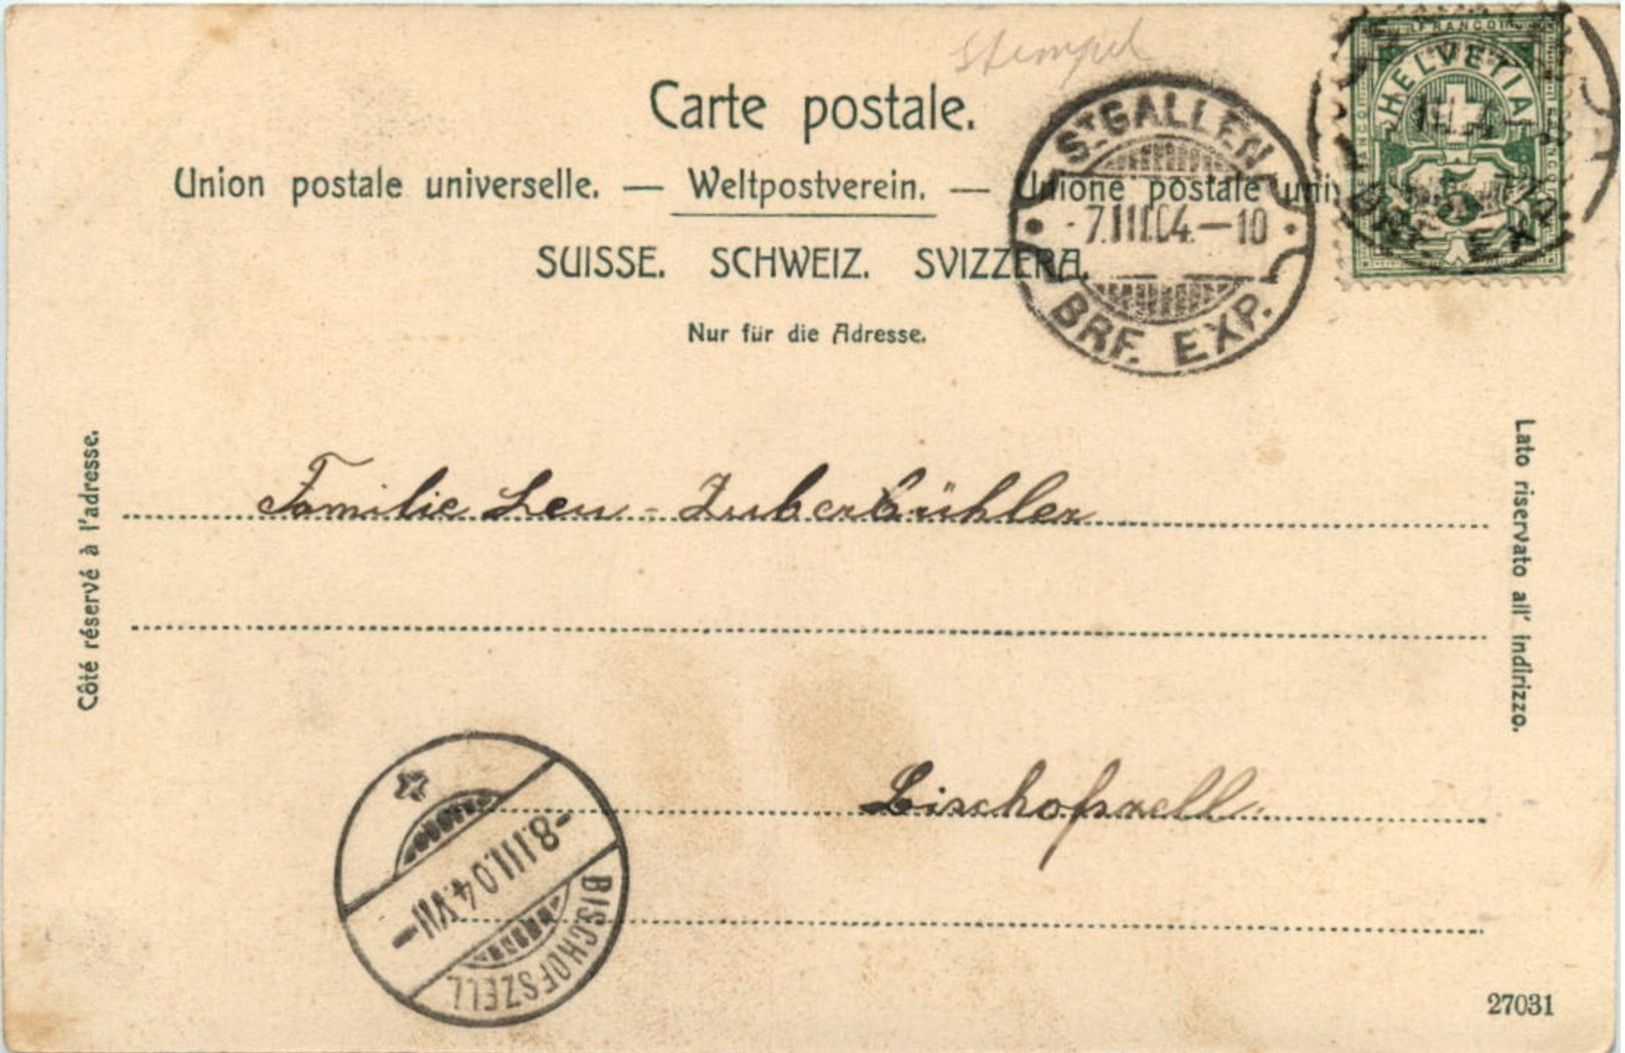 Stempel
Carte postale.
Union postale universelle. — Weltpostverein. — Unione postale uni
SUISSE. SCHWEIZ. SVIZZERA.
Nur für die Adresse.
ST GALLEN
-7.III.04.—10
BRF. EXP.
FRANCO
HELVETIA
5
BRF. EXP.
Côté réservé à l'adresse.
Lato riservato all' indirizzo.
Familie Leu - Zuberbühler
Bischofszell.
-8.III.04.VII-
BISCHOFSZELL
27031